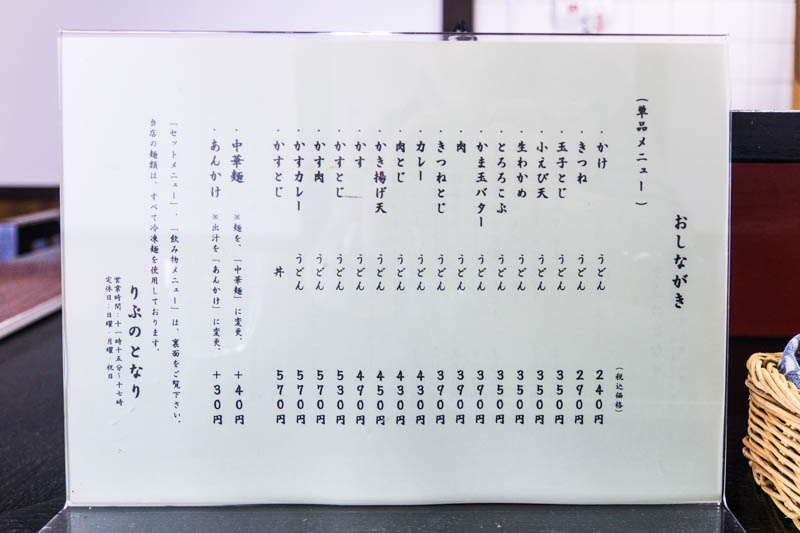 おしながき
(単品メニュー)
(税込価格)
・かけ うどん 240円
・きつね うどん 290円
・玉子とじ うどん 350円
・小えび天 うどん 350円
・生わかめ うどん 350円
・とろろこぶ うどん 350円
・かま玉バター うどん 390円
・肉 うどん 390円
・きつねとじ うどん 390円
・カレー うどん 410円
・肉とじ うどん 430円
・かき揚げ天 うどん 450円
・かす うどん 490円
・かすとじ うどん 530円
・かす肉 うどん 570円
・かすカレー うどん 570円
・かすとじ 丼 570円
・中華麺 ※麺を、「中華麺」に変更、 +40円
・あんかけ ※出汁を「あんかけ」に変更、 +30円
「セットメニュー」、「飲み物メニュー」は、裏面をご覧下さい。
当店の麺類は、すべて冷凍麺を使用しております。
りぶのとなり
営業時間:十一時十五分~十七時
定休日:日曜・月曜・祝日